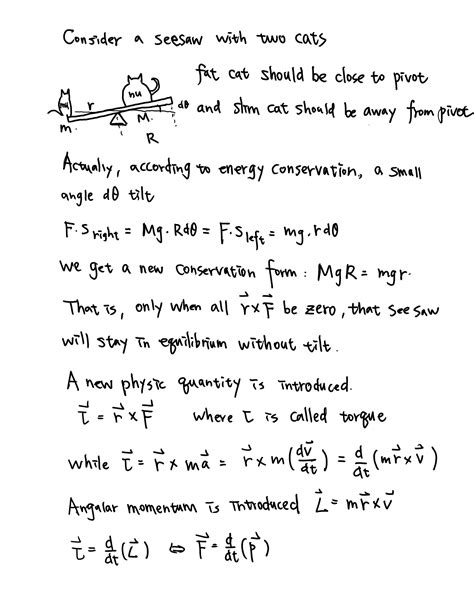 Consider a seesaw with two cats
fat cat should be close to pivot
nu
r
dθ
m
M
R
and slim cat should be away from pivot
Actually, according to energy conservation, a small
angle dθ tilt
F·S right = Mg·Rdθ = F·S left = mg·rdθ
we get a new conservation form: MgR = mgr.
That is, only when all r⃗×F⃗ be zero, that seesaw
will stay in equilibrium without tilt.
A new physic quantity is introduced.
τ⃗ = r⃗ × F⃗ where τ is called torque
while τ⃗ = r⃗ × ma⃗ = r⃗ × m(dv⃗/dt) = d/dt (mr⃗×v⃗)
Angular momentum is introduced L⃗ = mr⃗×v⃗
τ⃗ = d/dt(L⃗) ⇔ F⃗ = d/dt(p⃗)